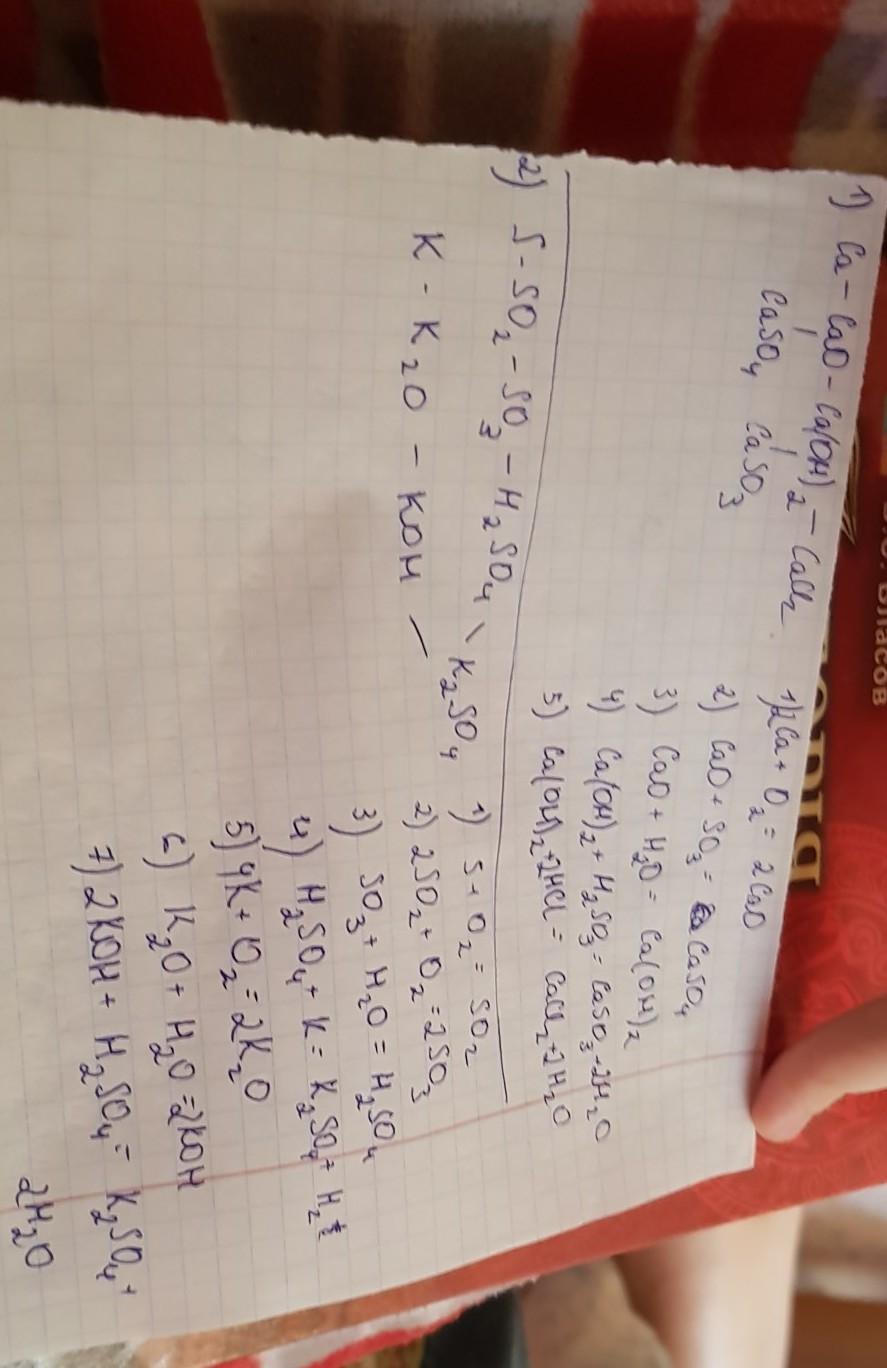 1) Ca - CaO - Ca(OH)₂ - CaCl₂
CaSO₄ CaSO₃
1) 2Ca + O₂ = 2CaO
2) CaO + SO₃ = CaSO₄
3) CaO + H₂O = Ca(OH)₂
4) Ca(OH)₂ + H₂SO₃ = CaSO₃ + 2H₂O
5) Ca(OH)₂ + 2HCl = CaCl₂ + 2H₂O
2) S - SO₂ - SO₃ - H₂SO₄ \ K₂SO₄
K - K₂O - KOH /
1) S + O₂ = SO₂
2) 2SO₂ + O₂ = 2SO₃
3) SO₃ + H₂O = H₂SO₄
4) H₂SO₄ + K = K₂SO₄ + H₂
5) 4K + O₂ = 2K₂O
6) K₂O + H₂O = 2KOH
7) 2KOH + H₂SO₄ = K₂SO₄ +
2H₂O
Власов